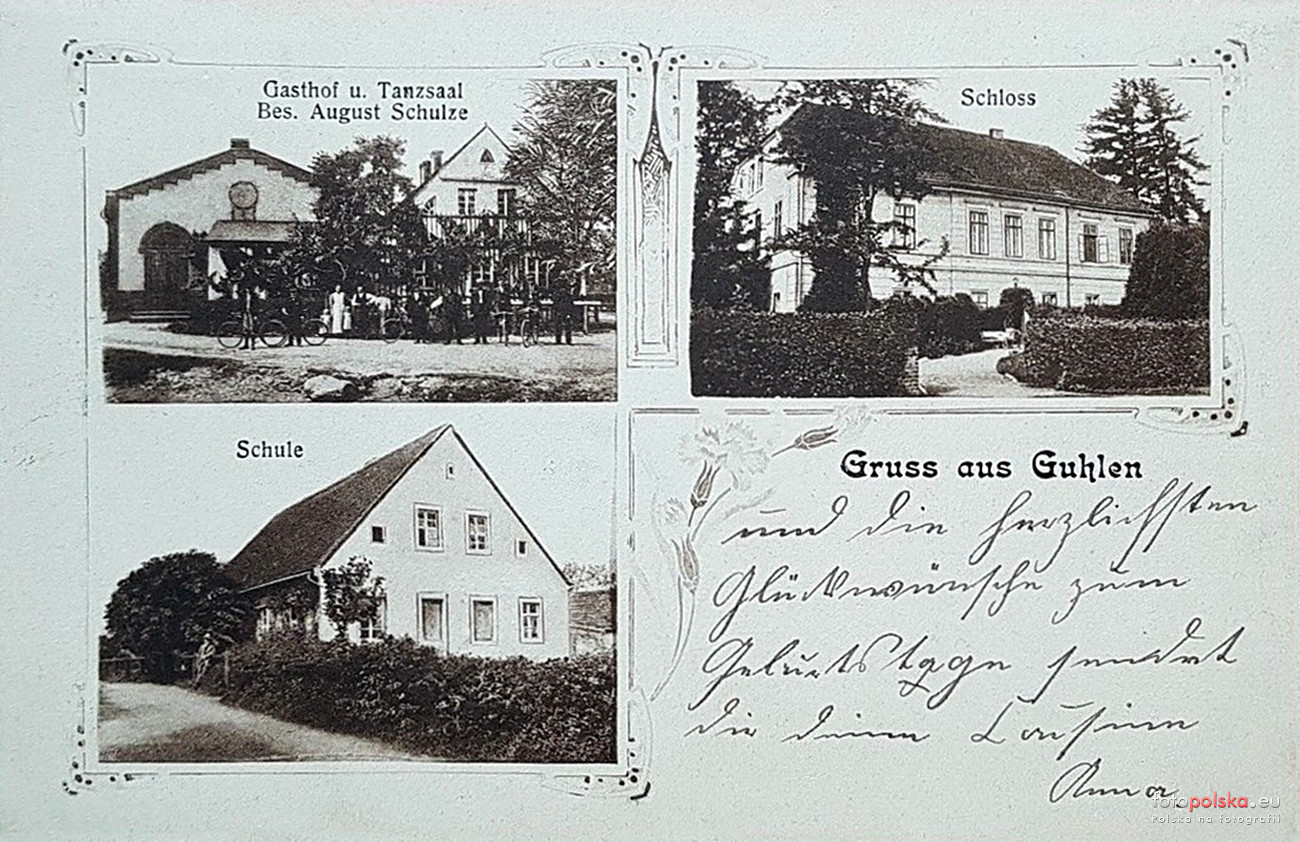 Gasthof u. Tanzsaal
Bes. August Schulze
Schloss
Schule
Gruss aus Guhlen
und die herzlichsten
Glückwünsche zum
Geburtstage sendet
dir deine Cousine
Anna
fotopolska.eu
Polska na fotografii